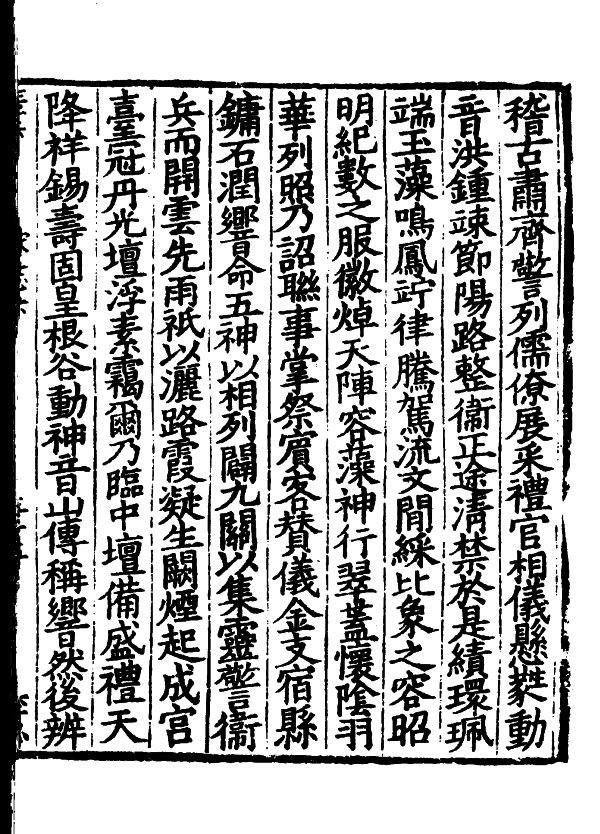 稽古肅齊警列儒僚展采禮官相儀懸蕤動
音洪鍾竦節陽路整衞正途淸禁於是績環珮
端玉藻鳴鳳竚律騰駕流文間綵比象之容昭
明紀數之服徽焯天陣容藻神行翠蓋懷陰羽
華列照乃詔聯事掌祭賓客賛儀金支宿縣
鏞石潤響命五神以相列闢九關以集靈警衞
兵而開雲先雨祇以灑路霞凝生闕煙起成宮
臺冠丹光壇浮素靄爾乃臨中壇備盛禮天
降祥錫壽固皇根谷動神音山傳稱響然後辨